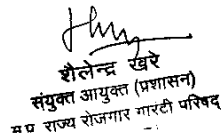 शैलेन्द्र खरे
संयुक्त आयुक्त (प्रशासन)
म.प्र. राज्य रोजगार गारंटी परिषद